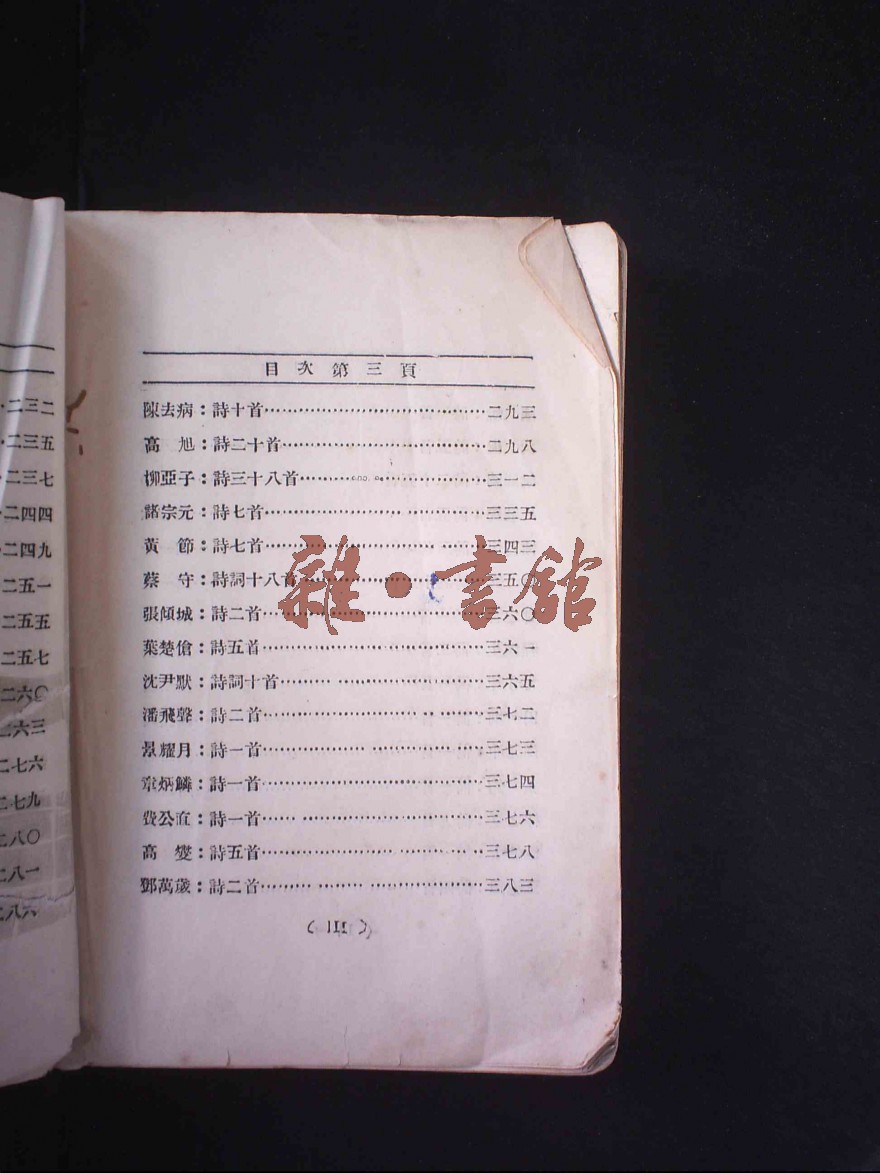 二三二
二三五
二三七
二四四
二四九
二五一
二五五
二五七
二六〇
二六三
二七六
二七九
二八〇
二八一
二八六
目次第三頁
陳去病：詩十首……二九三
高　旭：詩二十首……二九八
柳亞子：詩三十八首……三一二
諸宗元：詩七首……三三五
黃　節：詩七首……三四三
蔡　守：詩詞十八首……三五〇
張傾城：詩二首……三六〇
葉楚傖：詩五首……三六一
沈尹默：詩詞十首……三六五
潘飛聲：詩二首……三七二
景耀月：詩一首……三七三
章炳麟：詩一首……三七四
費公直：詩一首……三七六
高　燮：詩五首……三七八
鄧萬歲：詩二首……三八三
(III)
雜·書館